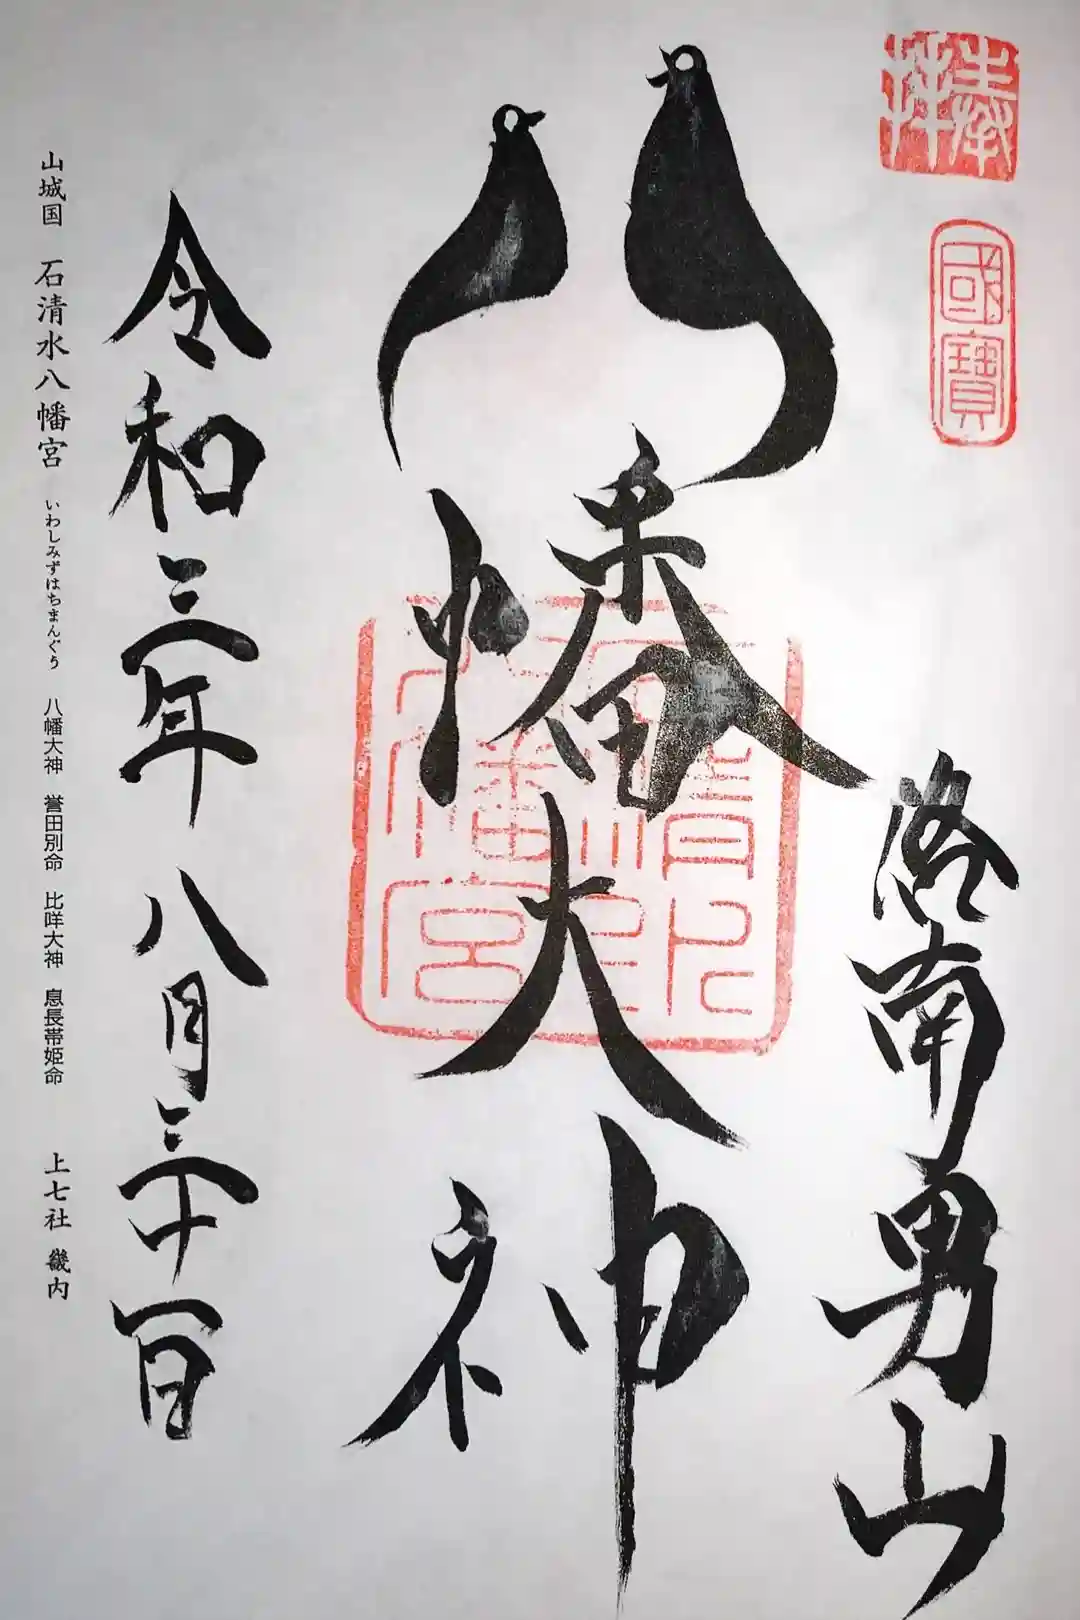 奉拝
國寶
洛南男山
八幡大神
石清水八幡宮印
令和三年八月三十一日
山城国 石清水八幡宮 いわしみずはちまんぐう 八幡大神 誉田別命 比咩大神 息長帯姫命 上七社 畿内